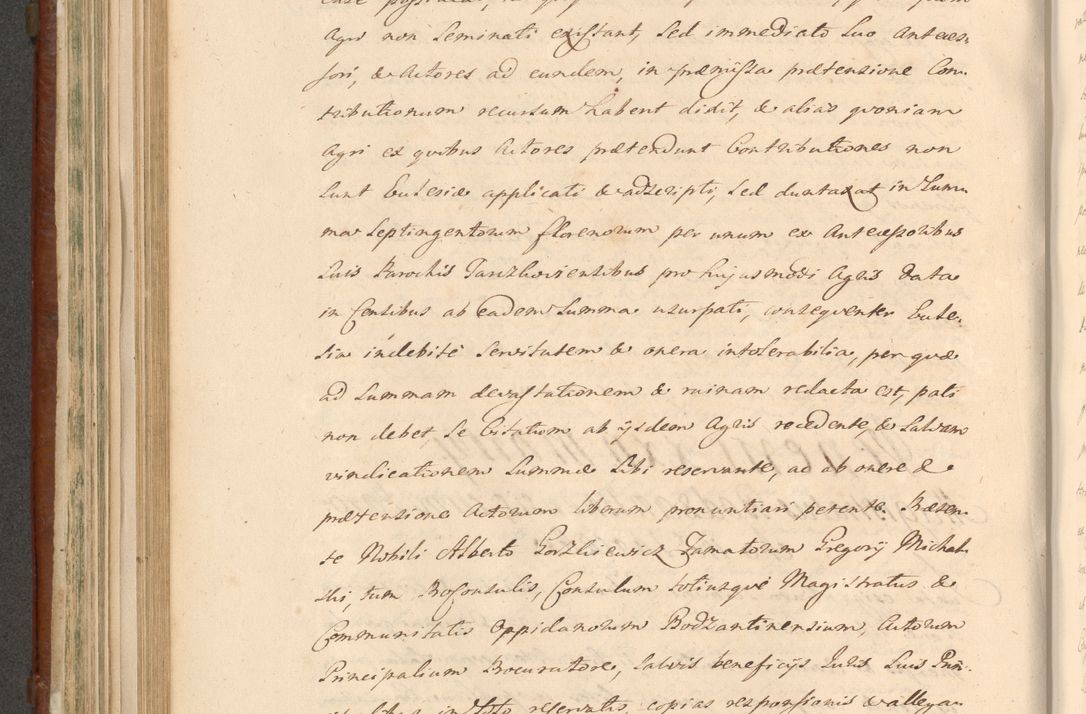 Agri non Seminati existant, sed immediato suo Anteces-
sori, & Actores ad eundem, in præmissa prætensione Con-
tributionum recursum habent dixit, & alias quoniam
Agri ex quibus Actores prætendunt Contributiones non
sunt Ecclesiæ applicati & adscripti, sed duntaxat in sum-
ma Septingentorum florenorum per unum ex Antecessoribus
suis Parochis pro hujusmodi Agris data
in Censibus ab eadem Summa usurpati, consequenter Eccle-
sia indebite servitutem & onera intolerabilia, per quæ
ad summam devastationem & ruinam redacta est, pati
non debet, se Citatum ab ijsdem Agris recedente, & salvam
vindicationem Summæ sibi reservante, ac ab onere &
prætensione Actorum liberum pronuntiari petente. Præsen-
te Nobili Alberto Famatorum Gregorij Michal-
ski, tum Proconsulis, Consulum totiusque Magistratus &
Communitatis Oppidanorum Bodzantinensium, Actorum
Principalium Procuratore, salvis beneficijs Juris Sui
in toto reservatis, copias responsionis & allega-